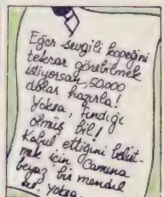 Eğer sevgili köpeğini
tekrar görebilmek
istiyorsan, 50.000
dolar hazırla!
Yoksa, Fındığı
ölmüş bil!
Kabul ettiğini belirt-
mek için Camına
beyaz bir mendil
as yoksa.